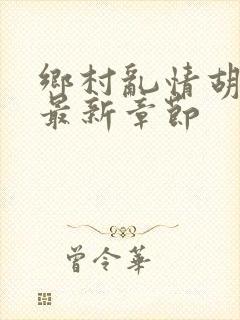 鄉村亂情胡
最新章節
曾令華